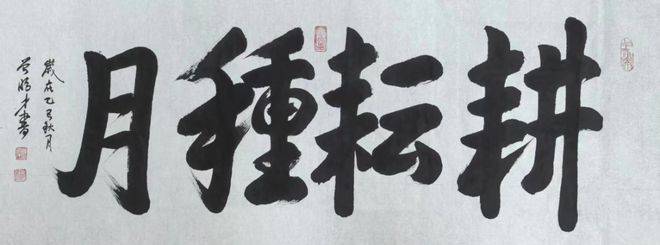 耕耘種月
歲在乙巳秋月
書